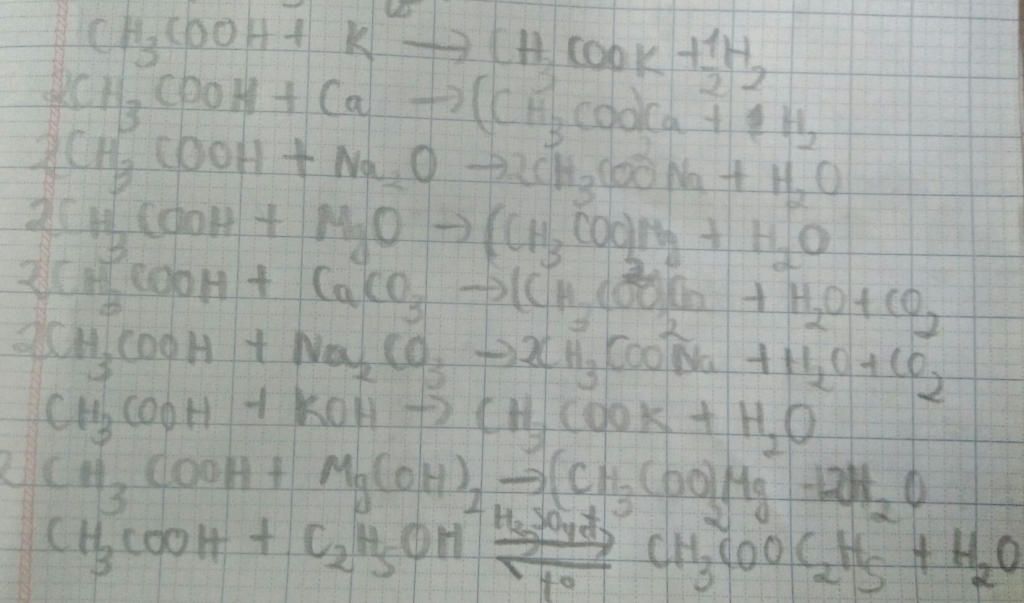 CH₃COOH + K → CH₃COOK + ½H₂
2CH₃COOH + Ca → (CH₃COO)₂Ca + H₂
2CH₃COOH + Na₂O → 2CH₃COONa + H₂O
2CH₃COOH + MgO → (CH₃COO)₂Mg + H₂O
2CH₃COOH + CaCO₃ → (CH₃COO)₂Ca + H₂O + CO₂
2CH₃COOH + Na₂CO₃ → 2CH₃COONa + H₂O + CO₂
CH₃COOH + KOH → CH₃COOK + H₂O
2CH₃COOH + Mg(OH)₂ → (CH₃COO)₂Mg + 2H₂O
CH₃COOH + C₂H₅OH ⇌ CH₃COOC₂H₅ + H₂O